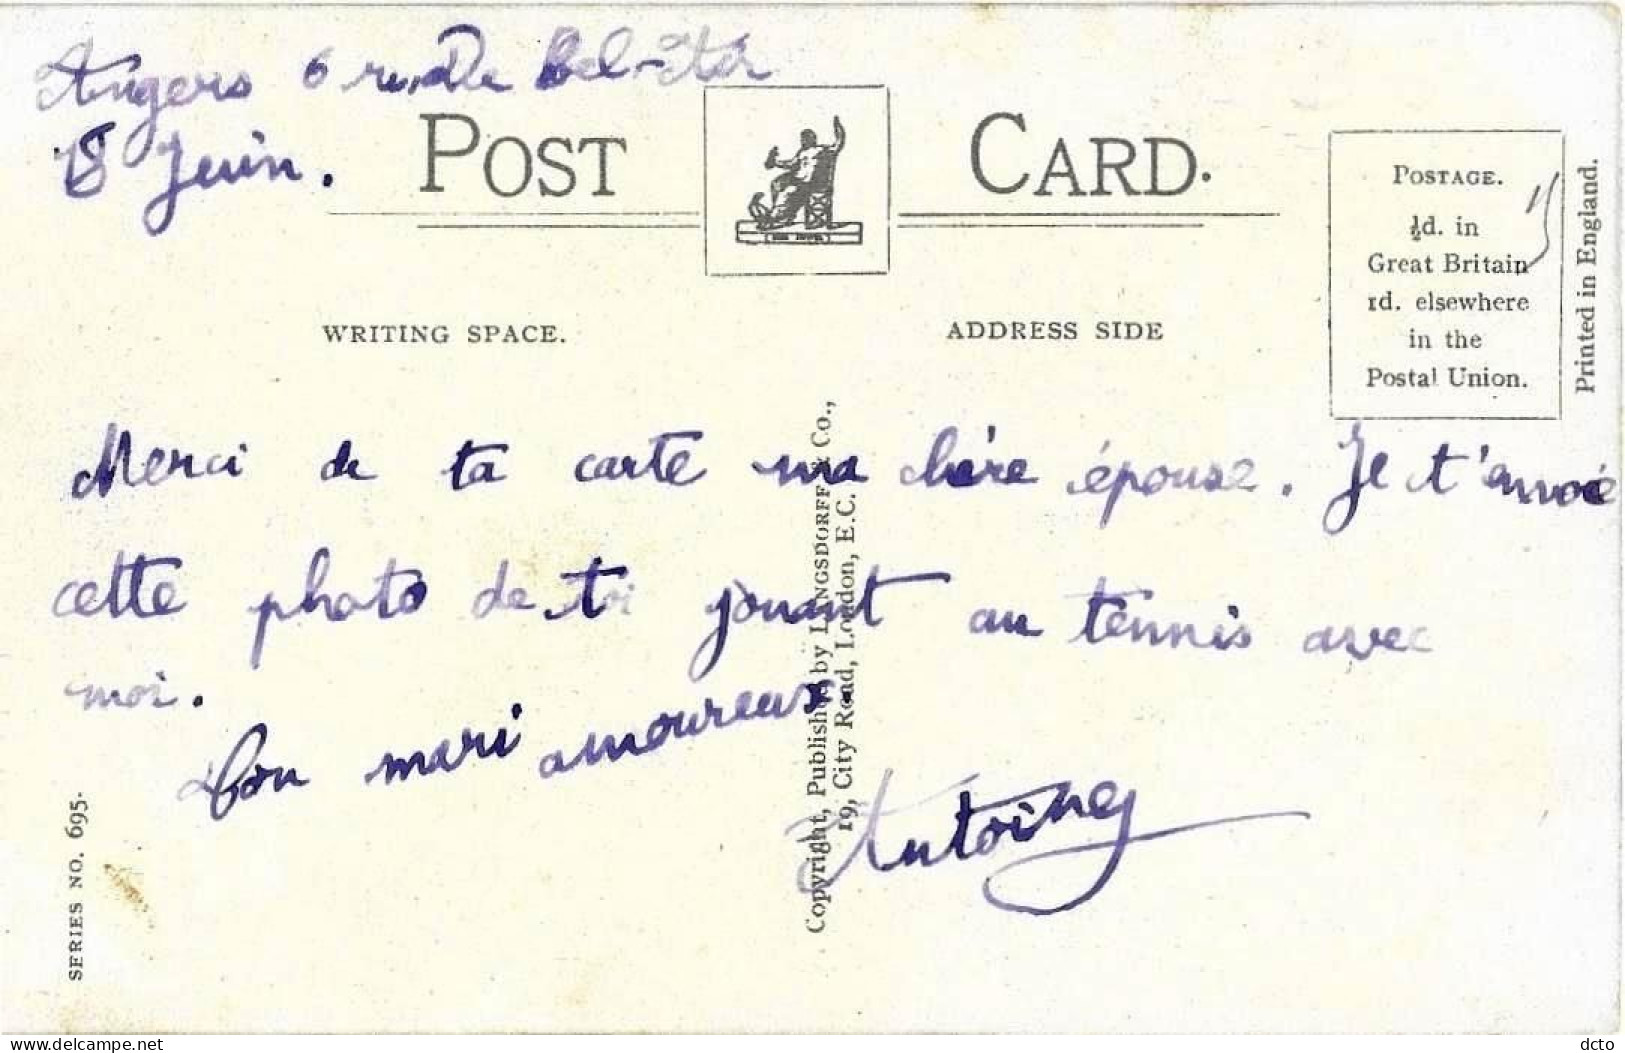 Angers 6 rue de Bel-Air
8 Juin.
POST CARD.
POSTAGE.
½d. in
Great Britain
1d. elsewhere
in the
Postal Union.
Printed in England.
WRITING SPACE.
ADDRESS SIDE
Merci de ta carte ma chère épouse. Je t'envoie
cette photo de toi jouant au tennis avec
moi.
Ton mari amoureux.
Antoine
Copyright, Published by LANGSDORFF & Co.,
19, City Road, London, E.C.
SERIES NO. 695.
www.delcampe.net
dcto